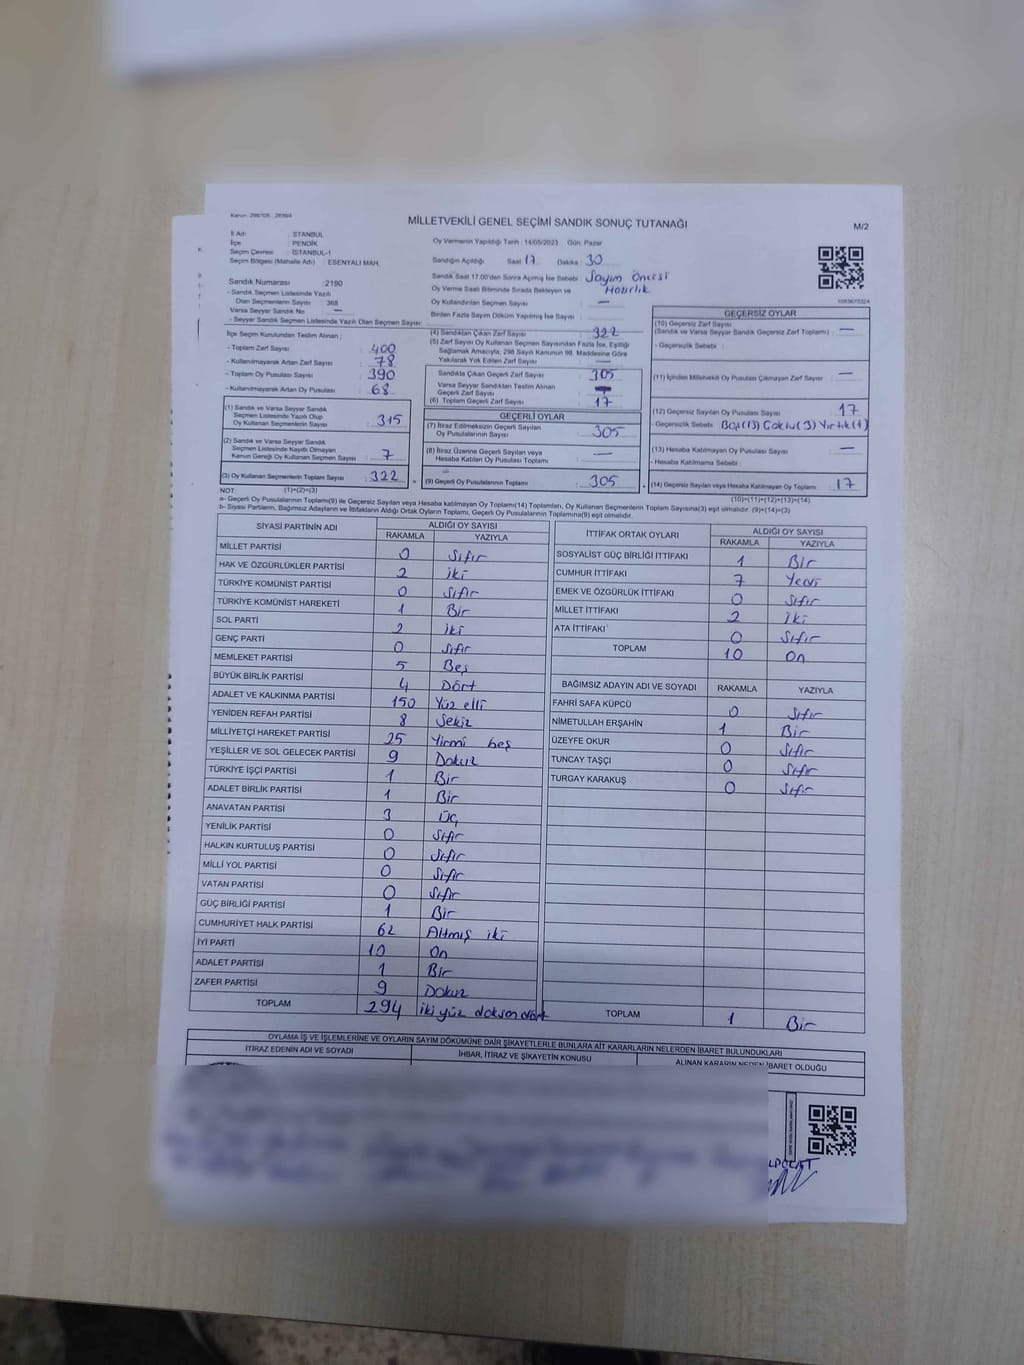 MİLLETVEKİLİ GENEL SEÇİMİ SANDIK SONUÇ TUTANAĞI
M/2
İl Adı : İSTANBUL
İlçe : PENDİK
Seçim Çevresi : İSTANBUL-1
Seçim Bölgesi (Mahalle Adı) ESENYALI MAH.
Oy Vermenin Yapıldığı Tarih : 14/05/2023 Gün: Pazar
Sandığın Açıldığı Saat 17 Dakika 30
Sandık Saat 17:00'den Sonra Açılmış İse Sebebi Sayım Öncesi Hazırlık
Oy Verme Saati Bitiminde Sırada Bekleyen ve
Oy Kullandırılan Seçmen Sayısı : —
Birden Fazla Sayım Döküm Yapılmış İse Sayısı :
Sandık Numarası :2190
- Sandık Seçmen Listesinde Yazılı
Olan Seçmenlerin Sayısı : 368
Varsa Seyyar Sandık No : —
- Seyyar Sandık Seçmen Listesinde Yazılı Olan Seçmen Sayısı:
İlçe Seçim Kurulundan Teslim Alınan ;
- Toplam Zarf Sayısı : 400
- Kullanılmayarak Artan Zarf Sayısı : 78
- Toplam Oy Pusulası Sayısı : 390
- Kullanılmayarak Artan Oy Pusulası : 68
(1) Sandık ve Varsa Seyyar Sandık
Seçmen Listesinde Yazılı Olup
Oy Kullanan Seçmenlerin Sayısı : 315
(2) Sandık ve Varsa Seyyar Sandık
Seçmen Listesinde Kayıtlı Olmayan
Kanun Gereği Oy Kullanan Seçmen Sayısı : 7
(3) Oy Kullanan Seçmenlerin Toplam Sayısı : 322
(1)+(2)=(3)
(4) Sandıktan Çıkan Zarf Sayısı : 322
(5) Zarf Sayısı Oy Kullanan Seçmen Sayısından Fazla İse, Eşitliği
Sağlamak Amacıyla, 298 Sayılı Kanunun 98. Maddesine Göre
Yakılarak Yok Edilen Zarf Sayısı : —
Sandıkta Çıkan Geçerli Zarf Sayısı : 305
Varsa Seyyar Sandıktan Teslim Alınan
Geçerli Zarf Sayısı
(6) Toplam Geçerli Zarf Sayısı : 17
GEÇERLİ OYLAR
(7) İtiraz Edilmeksizin Geçerli Sayılan
Oy Pusulalarının Sayısı : 305
(8) İtiraz Üzerine Geçerli Sayılan veya
Hesaba Katılan Oy Pusulası Toplamı : —
(9) Geçerli Oy Pusulalarının Toplamı : 305
GEÇERSİZ OYLAR
(10) Geçersiz Zarf Sayısı
(Sandık ve Varsa Seyyar Sandık Geçersiz Zarf Toplamı) : —
- Geçersizlik Sebebi :
(11) İçinden Milletvekili Oy Pusulası Çıkmayan Zarf Sayısı : —
(12) Geçersiz Sayılan Oy Pusulası Sayısı : 17
- Geçersizlik Sebebi : Boş(13) Çoklu(3) Yırtık(1)
(13) Hesaba Katılmayan Oy Pusulası Sayısı : —
- Hesaba Katılmama Sebebi :
(14) Geçersiz Sayılan veya Hesaba Katılmayan Oy Toplamı : 17
(10)+(11)+(12)+(13)=(14)
NOT:
a- Geçerli Oy Pusulalarının Toplamı(9) ile Geçersiz Sayılan veya Hesaba katılmayan Oy Toplamı(14) Toplamları, Oy Kullanan Seçmenlerin Toplam Sayısına(3) eşit olmalıdır. (9)+(14)=(3)
b- Siyasi Partilerin, Bağımsız Adayların ve İttifakların Aldığı Ortak Oyların Toplamı, Geçerli Oy Pusulalarının Toplamına(9) eşit olmalıdır.
SİYASİ PARTİNİN ADI ALDIĞI OY SAYISI
RAKAMLA YAZIYLA
MİLLET PARTİSİ 0 Sıfır
HAK VE ÖZGÜRLÜKLER PARTİSİ 2 iki
TÜRKİYE KOMÜNİST PARTİSİ 0 Sıfır
TÜRKİYE KOMÜNİST HAREKETİ 1 Bir
SOL PARTİ 2 iki
GENÇ PARTİ 0 Sıfır
MEMLEKET PARTİSİ 5 Beş
BÜYÜK BİRLİK PARTİSİ 4 Dört
ADALET VE KALKINMA PARTİSİ 150 Yüz elli
YENİDEN REFAH PARTİSİ 8 Sekiz
MİLLİYETÇİ HAREKET PARTİSİ 25 Yirmi beş
YEŞİLLER VE SOL GELECEK PARTİSİ 9 Dokuz
TÜRKİYE İŞÇİ PARTİSİ 1 Bir
ADALET BİRLİK PARTİSİ 1 Bir
ANAVATAN PARTİSİ 3 Üç
YENİLİK PARTİSİ 0 Sıfır
HALKIN KURTULUŞ PARTİSİ 0 Sıfır
MİLLİ YOL PARTİSİ 0 Sıfır
VATAN PARTİSİ 0 Sıfır
GÜÇ BİRLİĞİ PARTİSİ 1 Bir
CUMHURİYET HALK PARTİSİ 62 Altmış iki
İYİ PARTİ 10 On
ADALET PARTİSİ 1 Bir
ZAFER PARTİSİ 9 Dokuz
TOPLAM 294 iki yüz doksan dört
İTTİFAK ORTAK OYLARI ALDIĞI OY SAYISI
RAKAMLA YAZIYLA
SOSYALİST GÜÇ BİRLİĞİ İTTİFAKI 1 Bir
CUMHUR İTTİFAKI 7 Yedi
EMEK VE ÖZGÜRLÜK İTTİFAKI 0 Sıfır
MİLLET İTTİFAKI 2 iki
ATA İTTİFAKI 0 Sıfır
TOPLAM 10 On
BAĞIMSIZ ADAYIN ADI VE SOYADI RAKAMLA YAZIYLA
FAHRİ SAFA KÜPCÜ 0 Sıfır
NİMETULLAH ERŞAHİN 1 Bir
ÜZEYFE OKUR 0 Sıfır
TUNCAY TAŞÇI 0 Sıfır
TURGAY KARAKUŞ 0 Sıfır
TOPLAM 1 Bir
OYLAMA İŞ VE İŞLEMLERİNE VE OYLARIN SAYIM DÖKÜMÜNE DAİR ŞİKAYETLERLE BUNLARA AİT KARARLARIN NELERDEN İBARET BULUNDUKLARI
İTİRAZ EDENİN ADI VE SOYADI İHBAR, İTİRAZ VE ŞİKAYETİN KONUSU ALINAN KARARIN NEDEN İBARET OLDUĞU